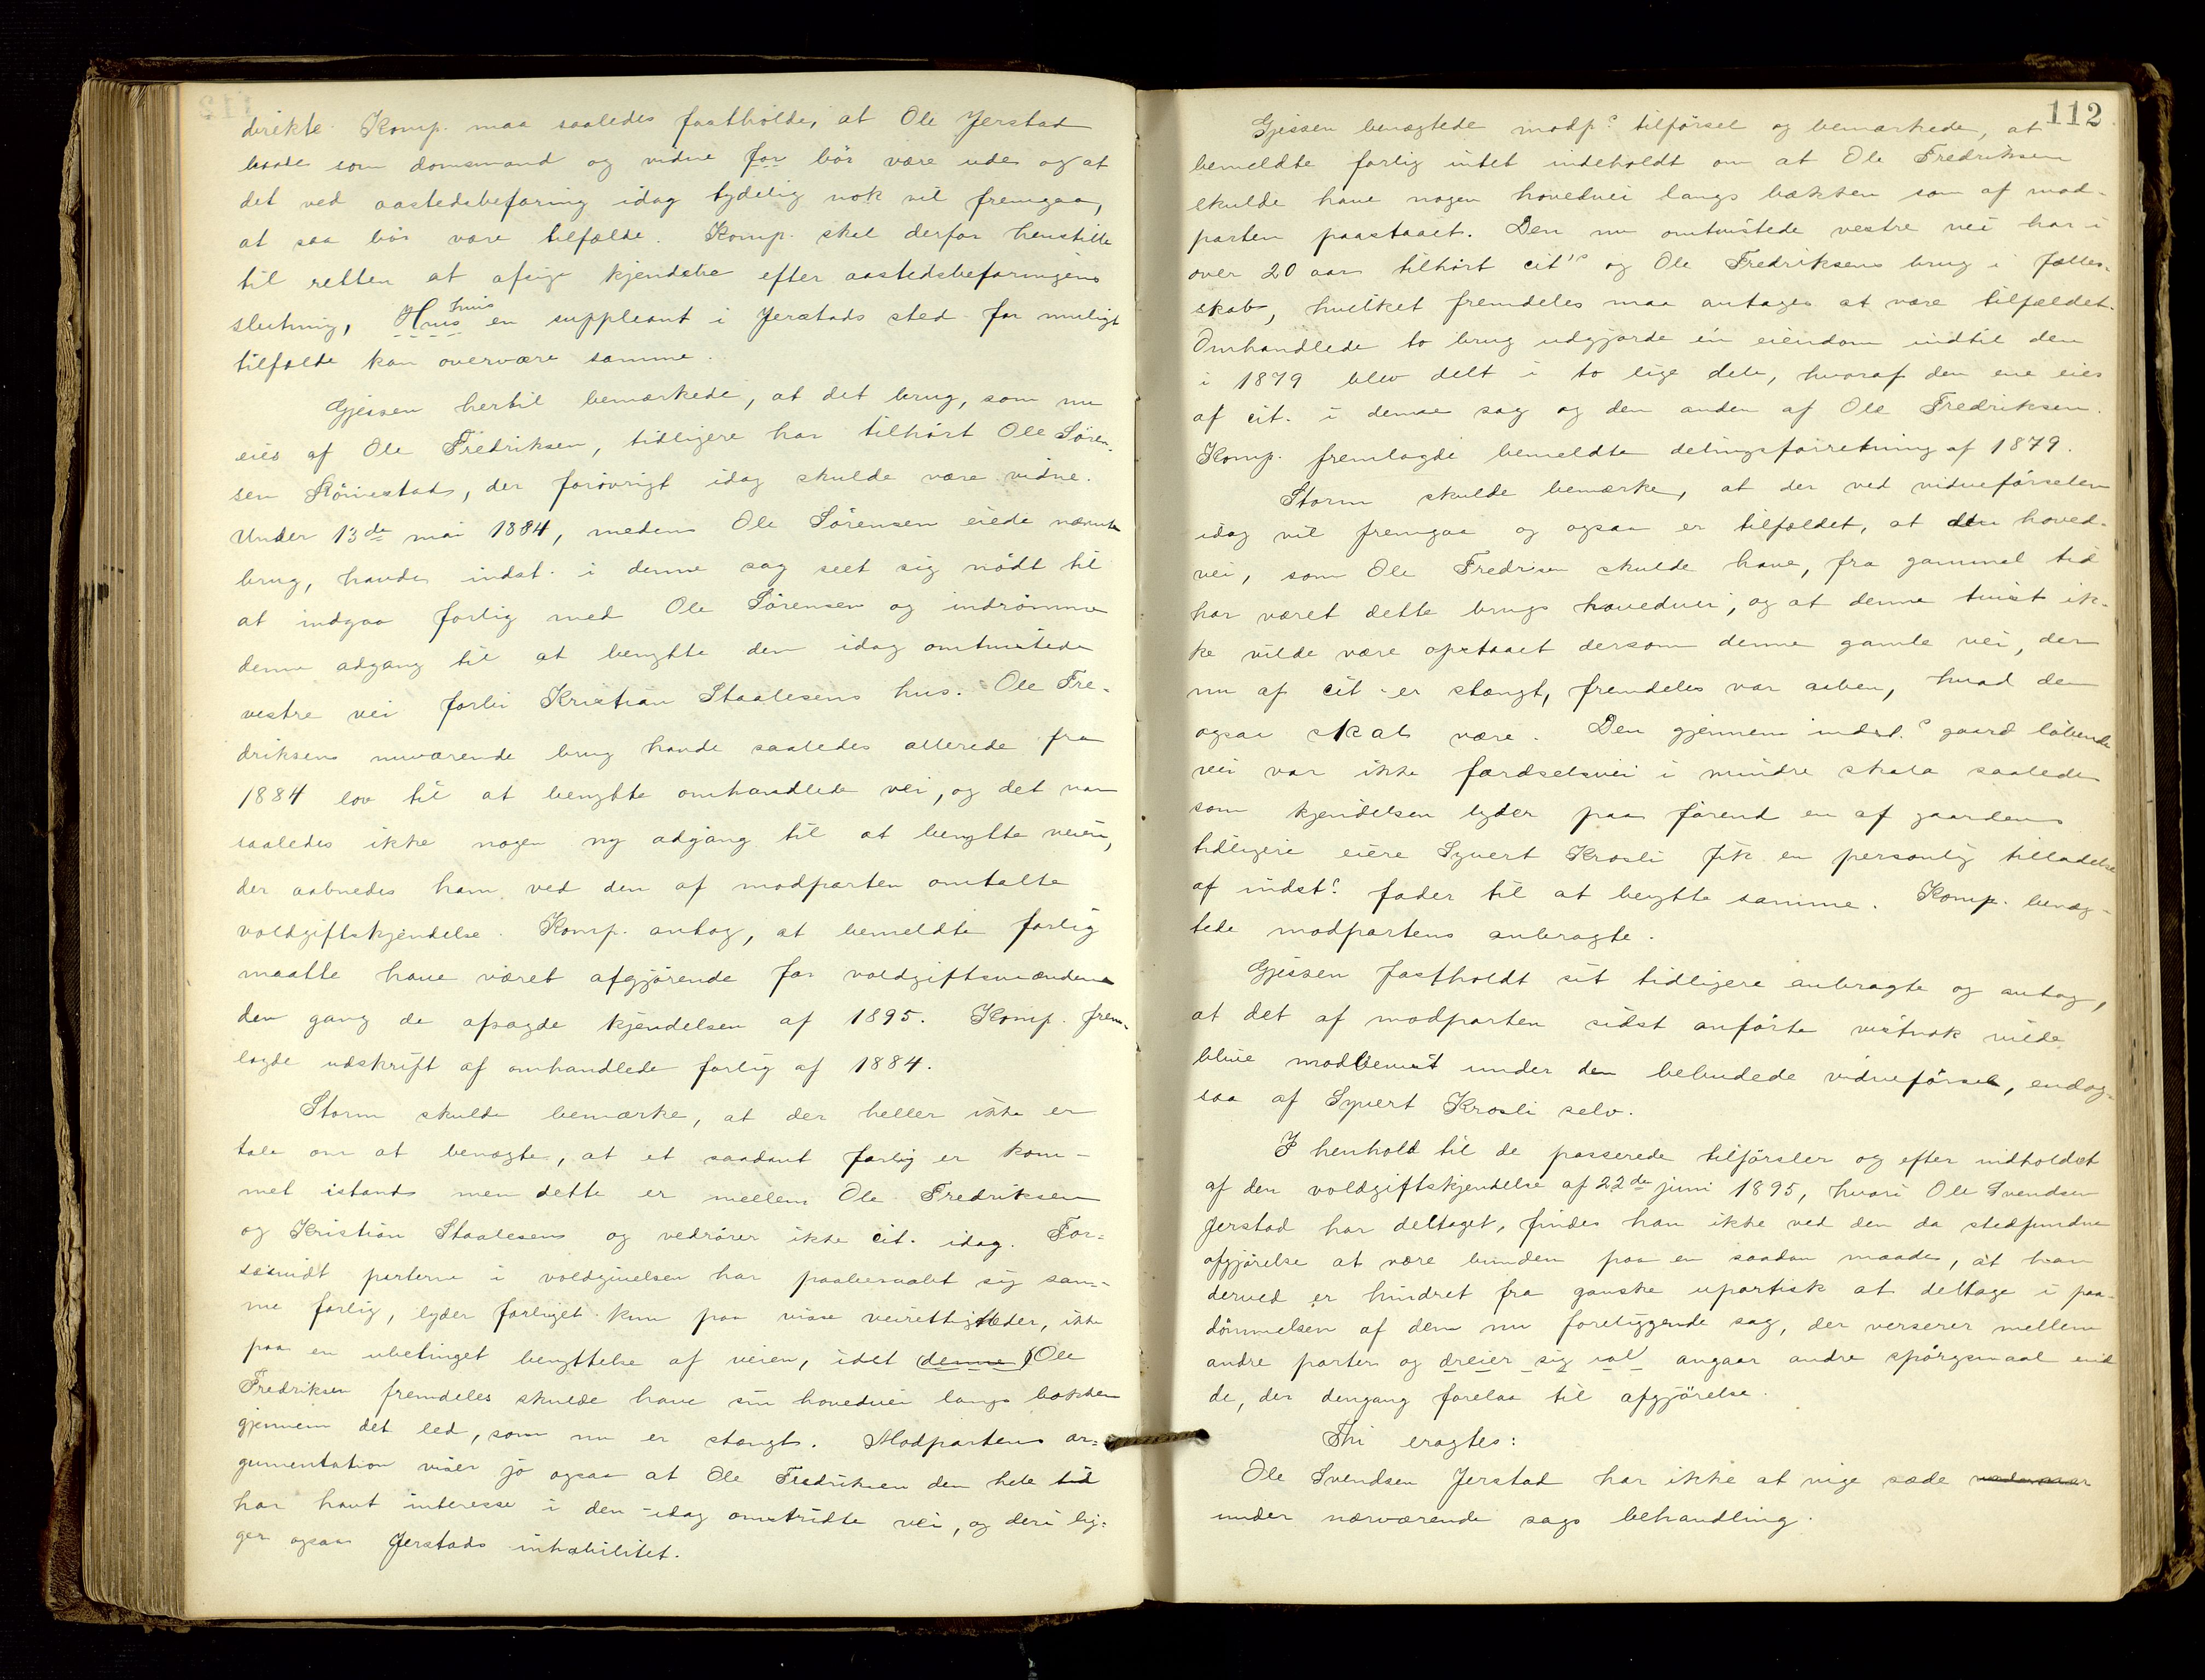 direkte. Komp. maa saaledes fastholde, at Ole Jerstad
baade som domsmand og vidne for bör være ude og at
det ved aastedsbefaring idag tydelig nok vil fremgaa,
at saa bör være tilfælde. Komp. skal derfor henstille
til retten at afsige kjendelse efter aastedsbefaringens
slutning, Hvis hvis en suppleant i Jerstads sted for muligt
tilfælde kan overvære samme.
Gjessen hertil bemærkede, at det brug, som nu
eies af Ole Fredriksen, tidligere har tilhört Ole Sören-
sen Römestad, der forövrigt idag skulde være vidne.
Under 13de mai 1884, medens Ole Sörensen eiede nævnte
brug, havde indst. i denne sag seet sig nödt til
at indgaa forlig med Ole Sörensen og indrömme
denne adgang til at benytte den idag omtvistede
vestre vei forbi Kristian Staalesens hus. Ole Fre-
driksens nuværende brug havde saaledes allerede fra
1884 lov til at benytte omhandlede vei, og det var
saaledes ikke nogen ny adgang til at benytte veien,
der aabnedes ham ved den af modparten omtalte
voldgiftskjendelse. Komp. antog, at bemeldte forlig
maatte have været afgjörende for voldgiftsmændene
den gang de afsagde kjendelsen af 1895. Komp. frem-
lagde udskrift af omhandlede forlig af 1884.
Storm skulde bemærke, at der heller ikke er
tale om at benægte, at et saadant forlig er kom-
met istand men dette er mellem Ole Fredriksen
og Kristian Staalesen og vedrörer ikke cit. idag. For-
saavidt parterne i voldgivelsen har paaberaabt sig sam-
me forlig, lyder forliget kun paa visse veirettigheder, ikke
paa en ubetinget benyttelse af veien, idet (denne) Ole
Fredriksen fremdeles skulde have sin hovedvei langs bækken
gjennem det led, som nu er stængt. Modpartens ar-
gumentation viser jo ogsaa at Ole Fredriksen den hele tid
har havt interesse i den idag omstridte vei, og deri lig-
ger ogsaa Jerstads inhabilitet.
112
Gjessen benægtede modp.s tilförsel og bemærkede, at
bemeldte forlig intet indeholdt om at Ole Fredriksen
skulde have nogen hovedvei langs bækken som af mod-
parten paastaaet. Den nu omtvistede vestre vei har i
over 20 aar tilhört cit's og Ole Fredriksens brug i fælles-
skab, hvilket fremdeles maa antages at være tilfældet.
Omhandlede to brug udgjorde én eiendom indtil den
i 1879 blev delt i to lige dele, hvoraf den ene eies
af cit. i denne sag og den anden af Ole Fredriksen.
Komp. fremlagde bemeldte delingsforretning af 1879.
Storm skulde bemærke, at der ved vidneförselen
idag vil fremgaa og ogsaa er tilfældet, at den hoved-
vei, som Ole Fredrisen skulde have, fra gammel tid
har været dette brugs hovedvei, og at denne tvist ik-
ke vilde være opstaaet dersom denne gamle vei, der
nu af cit. er stængt, fremdeles var aaben, hvad den
ogsaa skal være. Den gjennem indst.s gaard löbende
vei var ikke færdselsvei i mindre skala saaledes
som kjendelsen lyder paa förend en af gaardens
tidligere eiere Syvert Krosli fik en personlig tilladelse
af indst.s fader til at benytte samme. Komp. benæg-
tede modpartens anbragte.
Gjessen fastholdt sit tidligere anbragte og antog,
at det af modparten sidst anförte vistnok vilde
blive modbevist under den bebudede vidneförsel, endog-
saa af Syvert Krosli selv.
I henhold til de passerede tilförsler og efter indholdet
af den voldgiftskjendelse af 22de juni 1895, hvori Ole Svendsen
Jerstad har deltaget, findes han ikke ved den da stedfundne
afgjörelse at være bunden paa en saadan maade, at han
derved er hindret fra ganske upartisk at deltage i paa-
dömmelsen af den nu foreliggende sag, der verserer mellem
andre parter og dreier sig val angaar andre spörgsmaal end
de, der dengang forelaa til afgjörelse.
Thi eragtes:
Ole Svendsen Jerstad har ikke at vige sæde
under nærværende sags behandling.